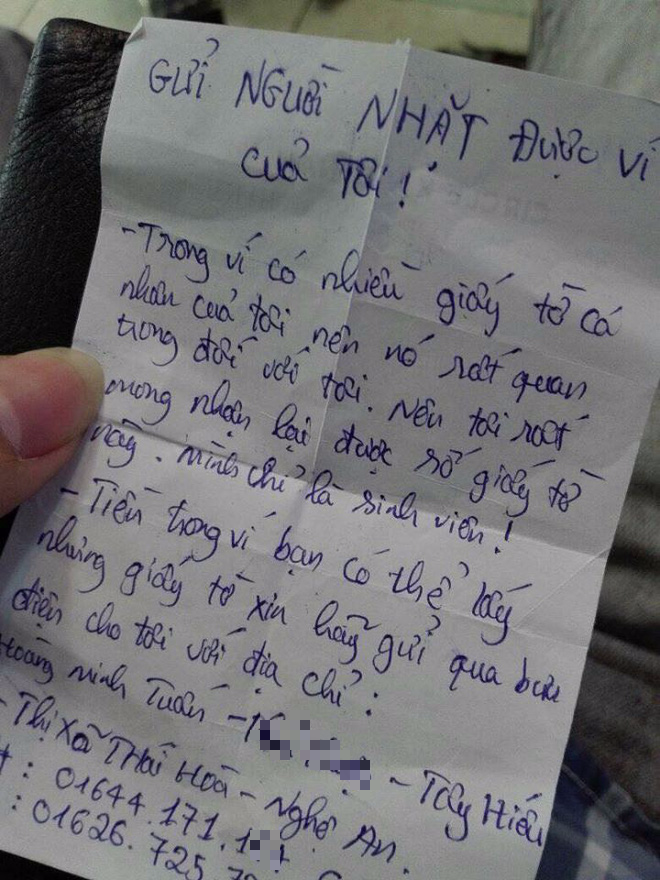 GỬI NGƯỜI NHẶT ĐƯỢC VÍ
CUẢ TÔI!
- Trong ví có nhiều giấy tờ cá
nhân cuả tôi nên nó rất quan
trong đối với tôi. Nên tôi rất
mong nhận lại được số giấy tờ
này. Mình chỉ là sinh viên!
- Tiền trong ví bạn có thể lấy
những giấy tờ xin hãy gửi qua bưu
điện cho tôi với địa chỉ:
Hoàng Minh Tuấn - - Tây Hiếu
- Thị Xã THÁI HOÀ - Nghệ An.
: 01644.171.1
: 01626.725.7